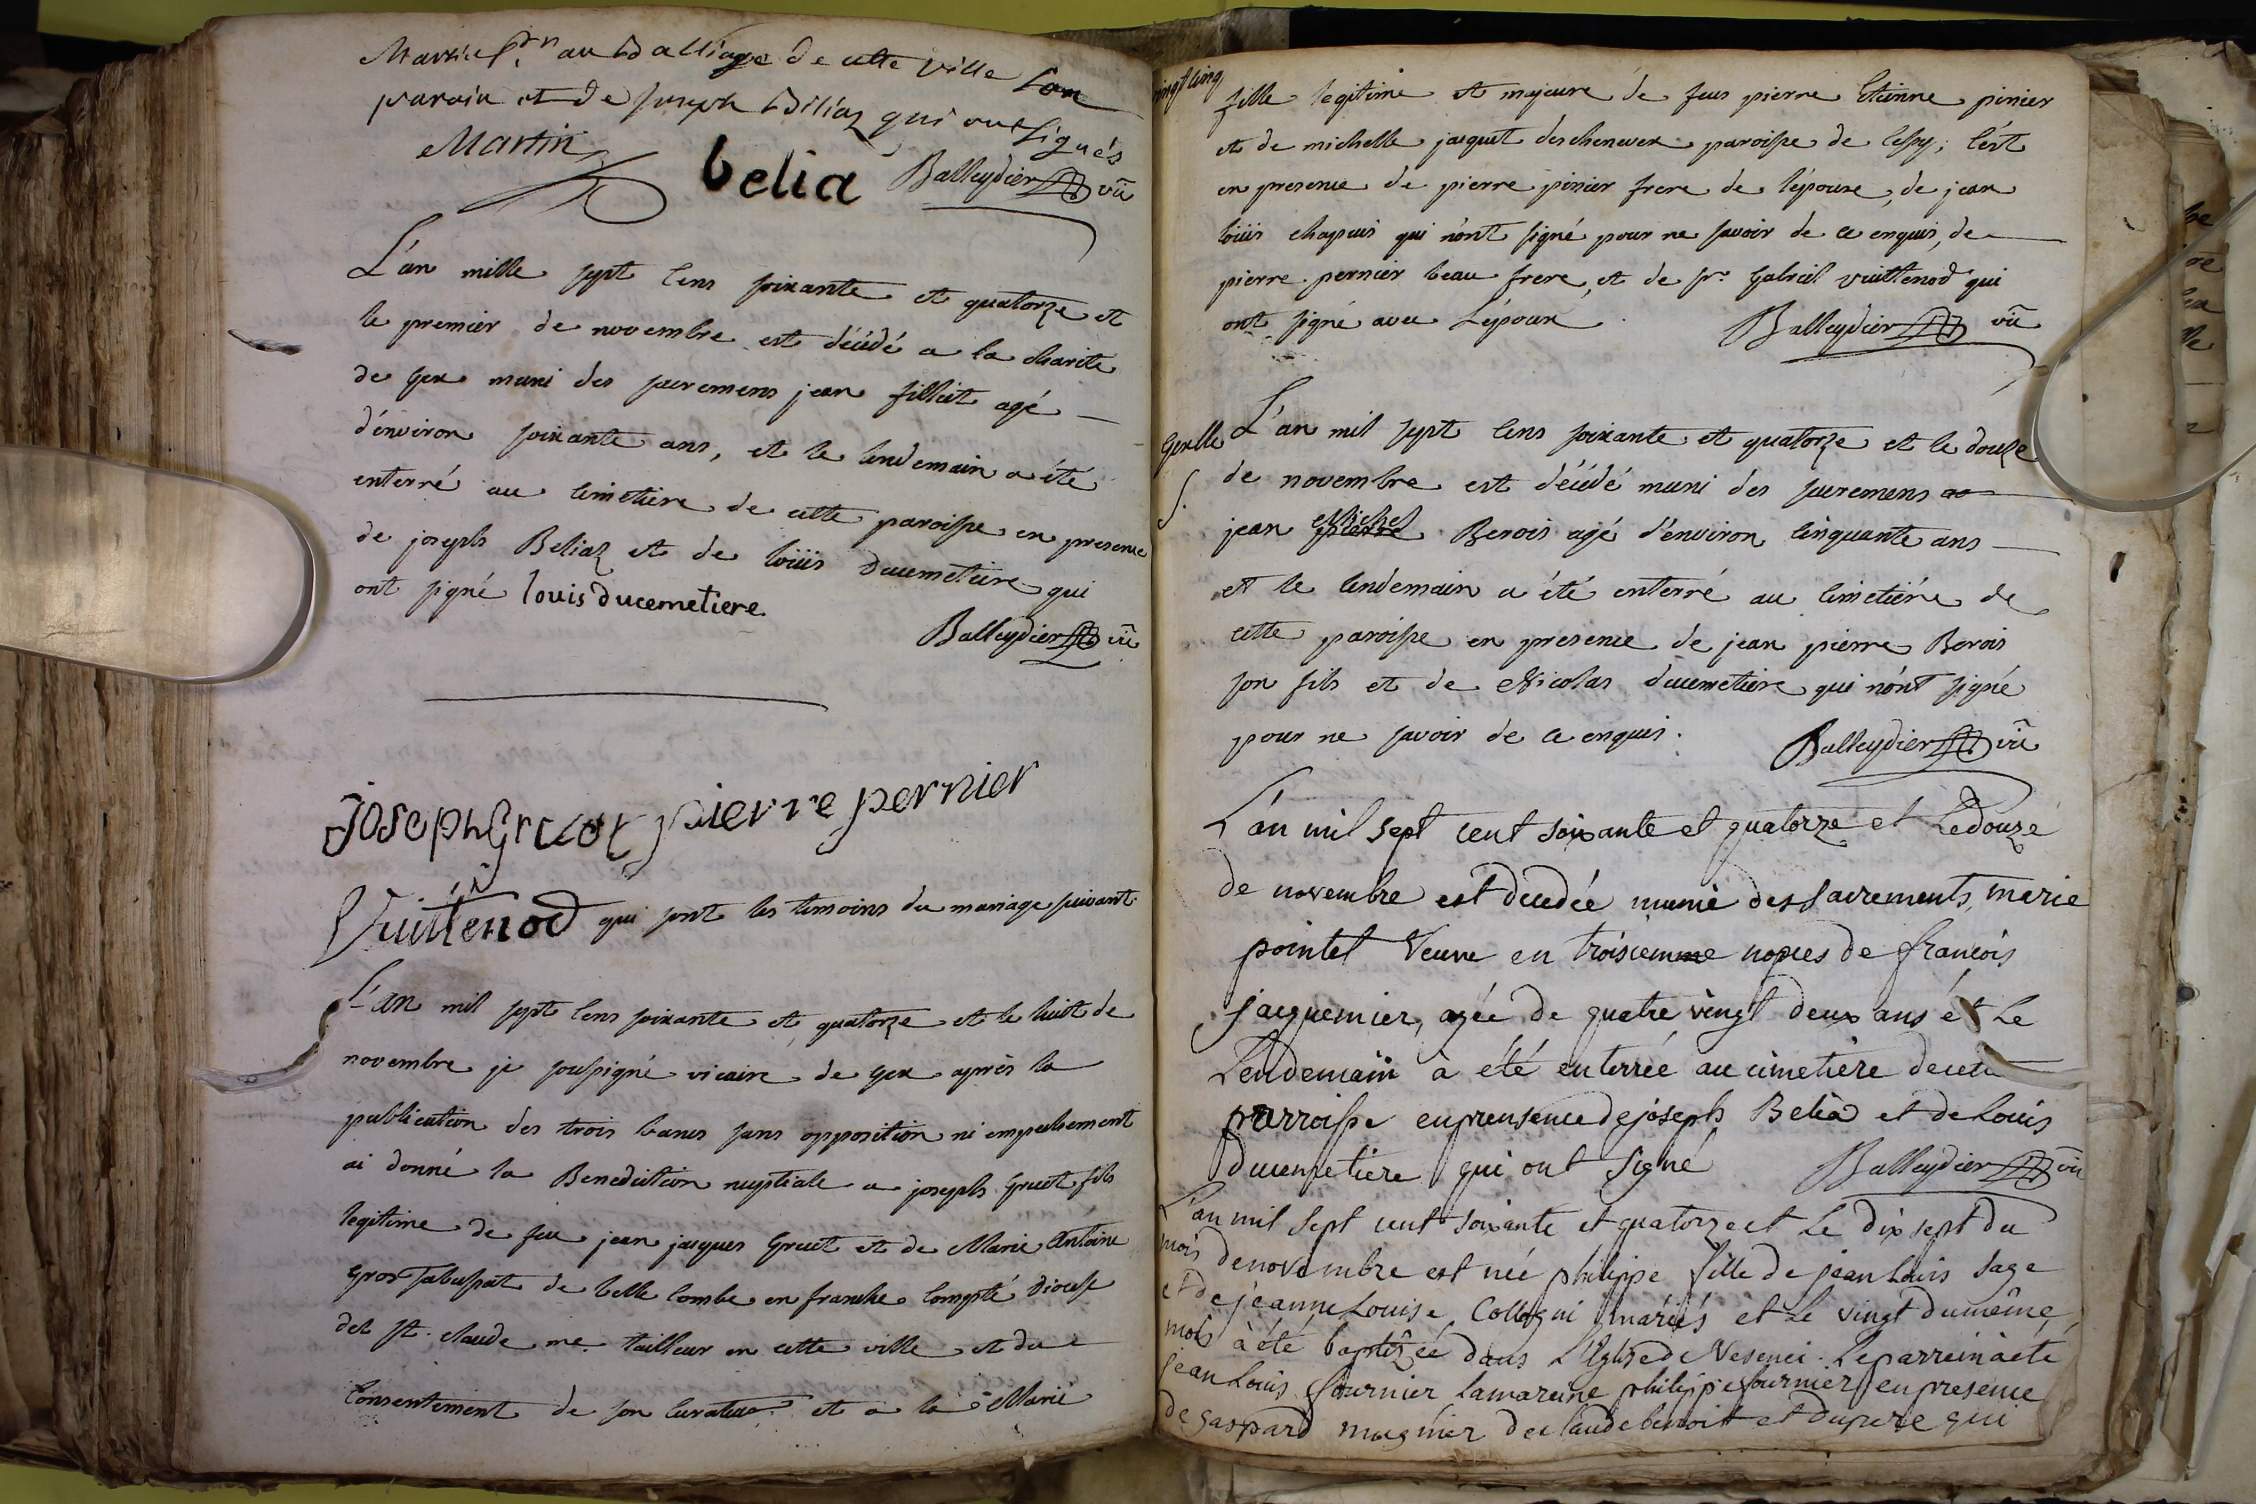 Martin pr. au Balliage de cette ville son
parain et de Joseph Béliaz qui ont signés
Martin belia Balleydier vic
L'an mille sept cens soixante et quatorze et
le premier de novembre est décédé a la charité
de Gex muni des sacremens jean filliet agé
d'énviron soixante ans, et le lendemain a été
enterré au cimetiére de cette paroisse en presence
de joseph Beliaz et de loüis ducemetiere qui
ont signé louis ducemetiere
Balleydier vic
Joseph Gruet pierre pernier
Vuittenod qui sont les temoins du mariage suivant
L'an mil sept cens soixante et quatorze et le huit de
novembre je soussigné vicaire de gex aprés la
publication des trois bancs sans opposition ni empechement
ai donné la Benediction nuptiale a joseph Gruet fils
legitime de feu jean jacques Gruet et de Marie Antoine
gros de belle combe en franche Compté Diocese
de St. claude me. tailleur en cette ville et du
Consentement de son Curateur et a la Marie
fille legitime et majeure de feus pierre Etienne pinier
et de michelle jaquet des cheneven paroisse de Cessy; c'ést
en presence de pierre pinier frere de l'épouse, de jean
loüis chapuis qui n'ont signé pour ne savoir de ce enquis, de
pierre pernier beau frere, et de sr. Gabriel vuittenod qui
ont signé avec L'époux
Balleydier vic
Gexlle
S.
L'an mil sept cens soixante et quatorze et le douze
de novembre est décédé muni des sacremens
jean Michel pierre Benois agé d'énviron cinquante ans
et le lendemain a été enterré au Cimetiére de
cette paroisse en presence de jean pierre Benois
son fils et de Nicolas ducemetiere qui n'ont signé
pour ne savoir de ce enquis.
Balleydier vic
L'an mil sept cent soixante et quatorze et Le douze
de novembre est decedée munie des sacrements, marie
pointet Veuve en troisiemme nopces de françois
jacquemier, agée de quatre vingt deux ans ét Le
Lendemain à été enterrée au cimetière de cette
parroisse en preensence de joseph Belia et de Louis
ducemetiere qui ont signé
Balleydier vic
L'an mil sept cent soixante et quatorze et Le dix sept du
mois de novembre est née philippe fille de jean Louis sage
et de jeanne Louise Collogni mariés et Le vingt du même
mois à été baptizée dans L'Eglise de Vesenci. Le parrein à eté
jean Louis fournier La mareine philippe fournier en presence
de gaspard magnier de Claude benoit et du pere qui